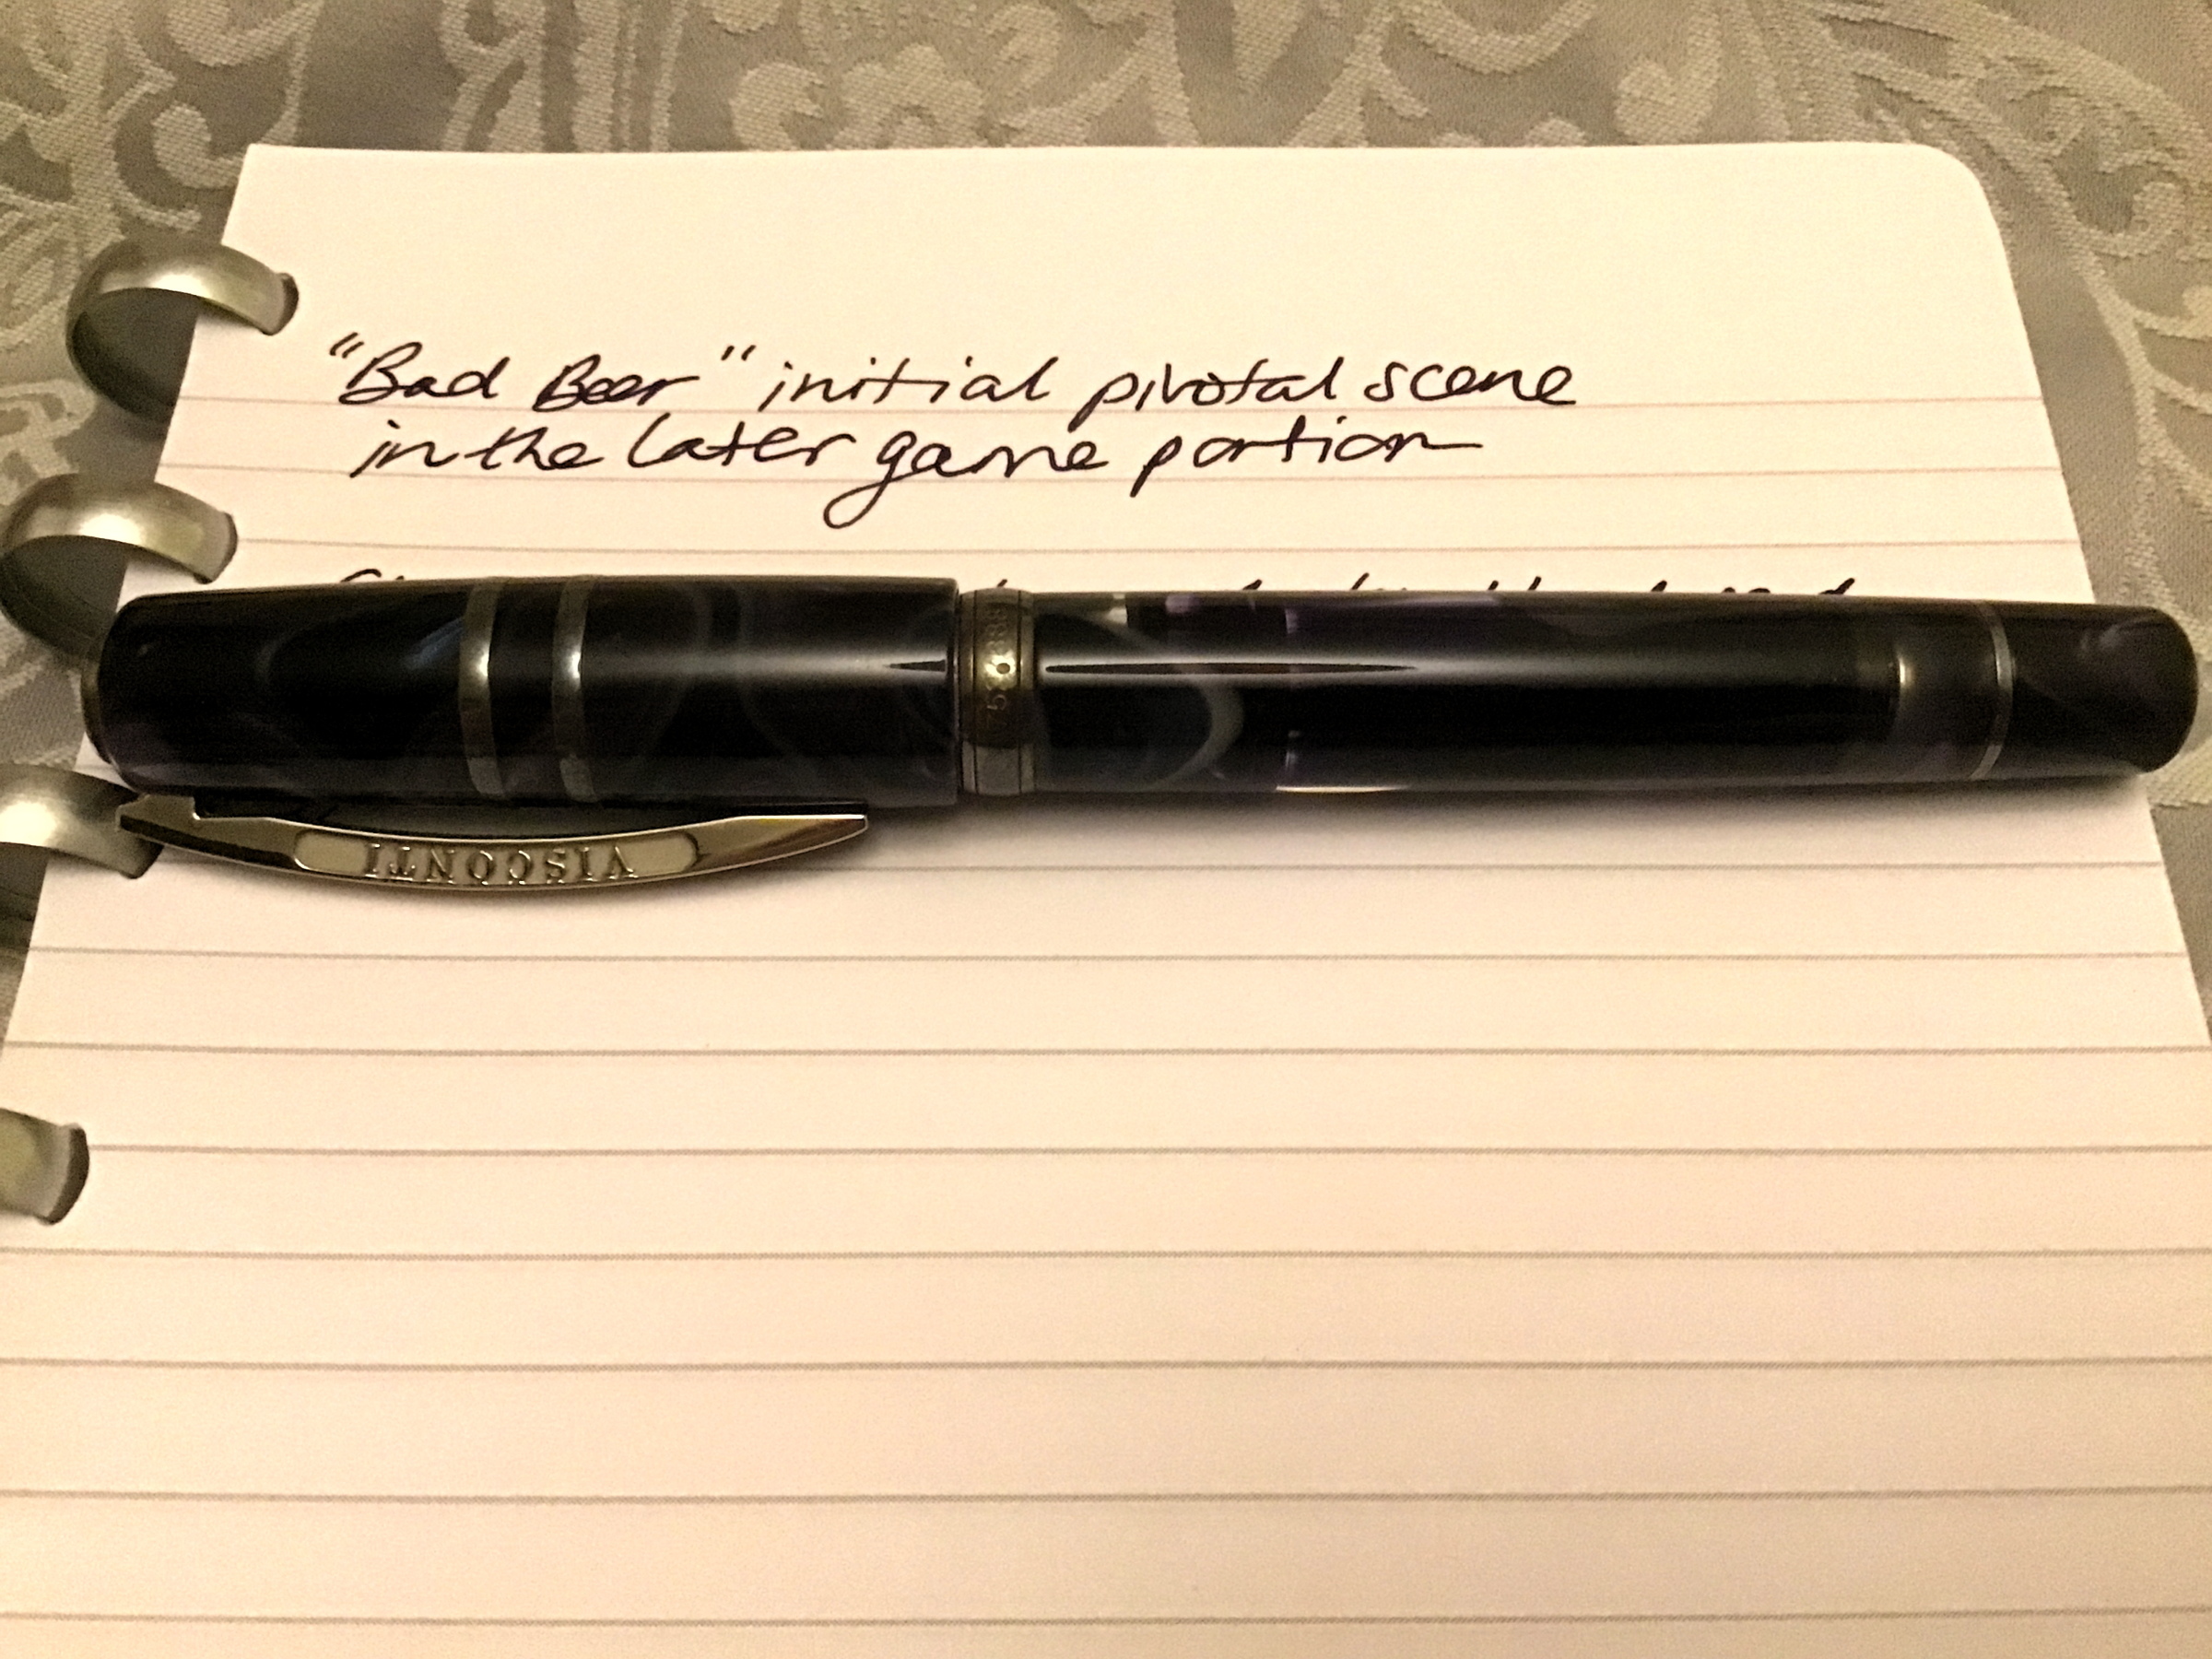 "Bad Beer" initial pivotal scene
in the later game portion
VISCONTI